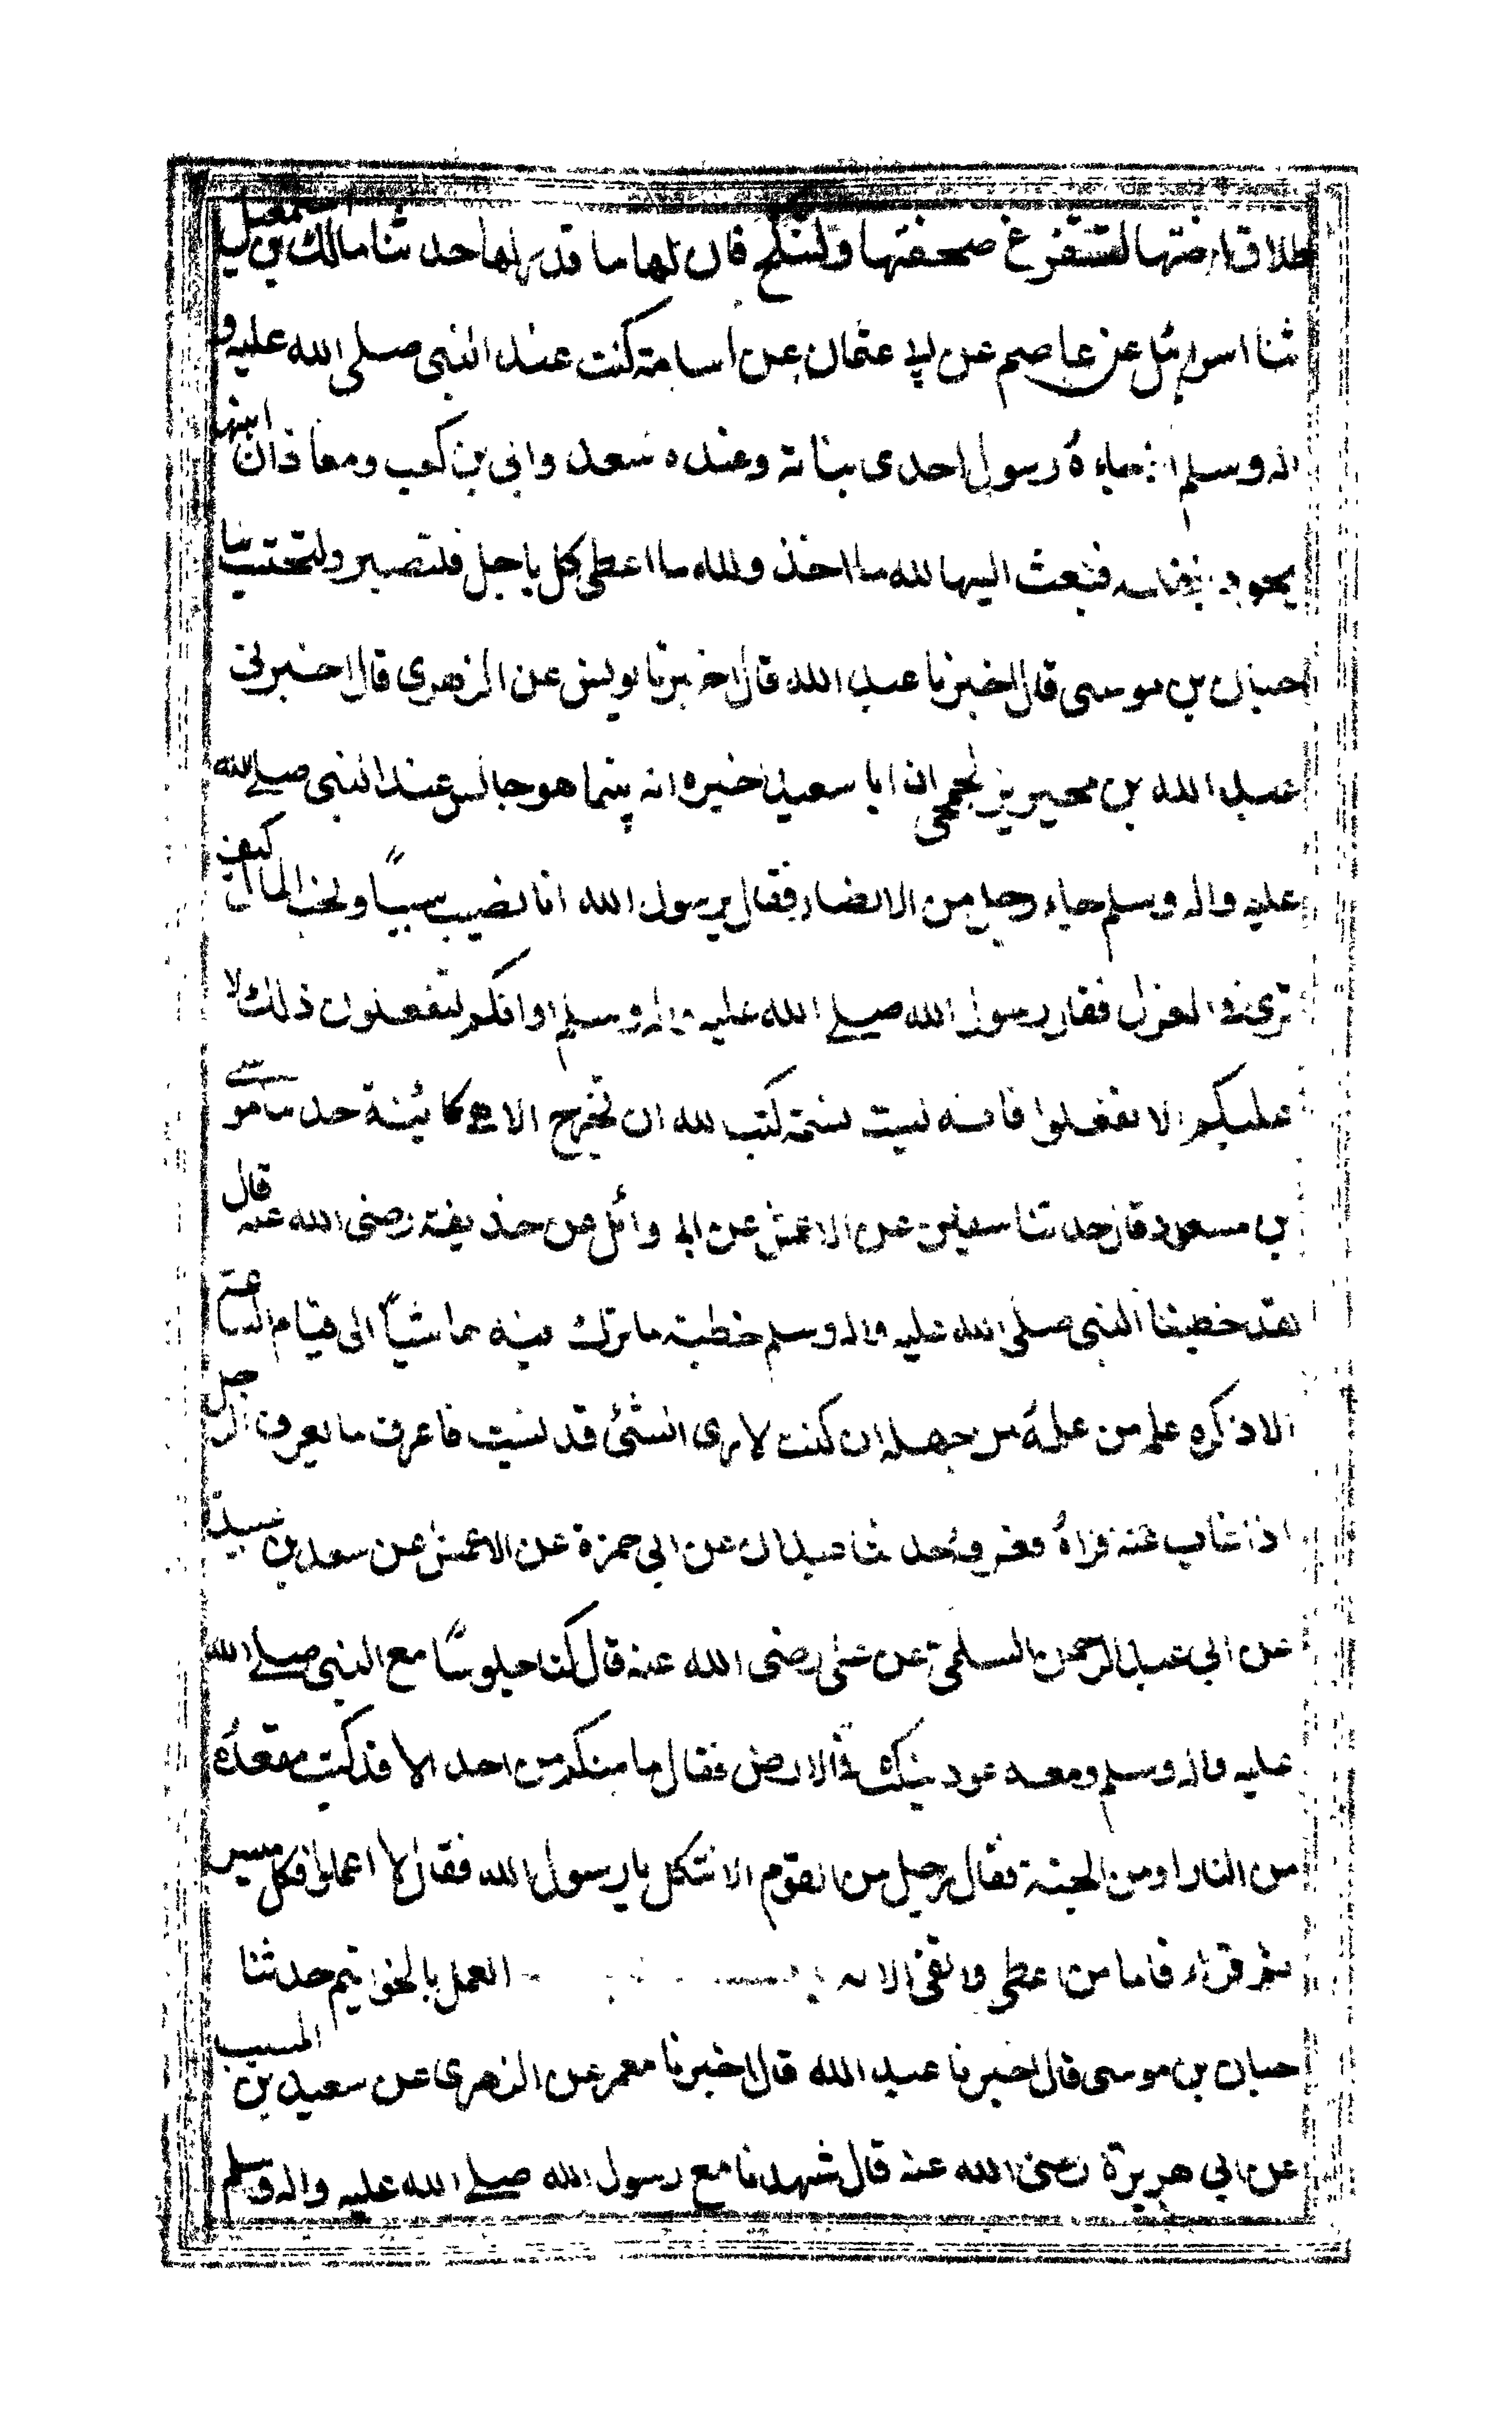 طلاق اختها لتستفرغ صحفتها ولتنكح فان لها ما قدر لها حدثنا مالك بن اسمعيل
ثنا اسرائيل عن عاصم عن ابي عثمان عن اسامة كنت عند النبي صلى الله عليه و
اله وسلم اذ جاءه رسول احدى بناته وعنده سعد وابي بن كعب ومعاذ ان ابنها
يجود بنفسه فبعث اليها لله ما اخذ ولله ما اعطى كل باجل فلتصبر ولتحتسب ثنا
حبان بن موسى قال اخبرنا عبد الله قال اخبرنا يونس عن الزهري قال اخبرني
عبد الله بن محيريز الجمحي ان ابا سعيد اخبره انه بينما هو جالس عند النبي صلى الله
عليه واله وسلم جاء رجل من الانصار فقال يرسول الله انا نصيب سبيًا ونحب المال كيف
ترى في العزل فقال رسول الله صلى الله عليه واله وسلم او انكم لتفعلون ذلك لا
عليكم الا تفعلوا فانه ليست نسمة كتب الله ان تخرج الا هي كائينة حدثنا موسى
بن مسعود قال حدثنا سفين عن الاعمش عن ابي وائل عن حذيفة رضي الله عنه قال
لقد خطبنا النبي صلى الله عليه واله وسلم خطبة ما ترك فيه مما شيأً الى قيام الساعة
الا ذكره علم من علمه من جهله ان كنت لارى الشئ قد نسيت فاعرف ما يعرف الرجل
اذا غاب عنه فراه فعرفه حدثنا عبدان عن ابي حمزة عن الاعمش عن سعد بن عبيدة
عن ابي عبد الرحمن السلمي عن علي رضي الله عنه قال كنا جلوسًا مع النبي صلى الله
عليه واله وسلم ومعه عود ينكت في الارض فقال ما منكم من احد الا قد كتب مقعده
من النار او من الجنة فقال رجل من القوم الا نتكل يا رسول الله فقال لا اعملوا فكل ميسر
ثم قراء فاما من اعطى واتقى الايه العمل بالخواتيم حدثنا
حبان بن موسى قال اخبرنا عبد الله قال اخبرنا معمر عن الزهرى عن سعيد بن المسيب
عن ابي هريرة رضي الله عنه قال شهدنا مع رسول الله صلى الله عليه واله وسلم